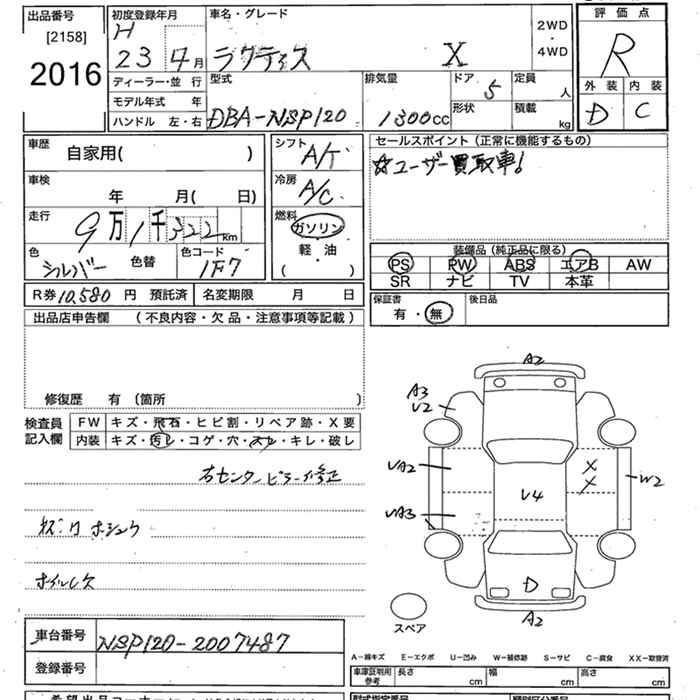 出品番号
[2158]
2016
初度登録年月
H
23 4月
ディーラー・並 行
モデル年式 年
ハンドル 左・右
車名・グレード
ラクティス X
2WD
・
4WD
型式
DBA-NSP120
排気量
1300cc
ドア
5
形状
定員
人
積載
kg
評 価 点
R
外 装 内 装
D C
車歴
自家用( )
車検
年 月( 日)
走行
9万1千322km
色
シルバー
色替
色コード
1F7
シフト
A/T
冷房
A/C
燃料
ガソリン
軽・油
( )
R券 10,580 円 預託済 名変期限 月 日
セールスポイント(正常に機能するもの)
☆ユーザー買取車!
装備品(純正品に限る)
PS PW ABS エアB AW
SR ナビ TV 本革
保証書
有・無
後日品
出品店申告欄 (不良内容・欠品・注意事項等記載)
修復歴 有 (箇所 )
検査員
記入欄
FW キズ・飛石・ヒビ割・リペア跡・X要
内装 キズ・汚レ・コゲ・穴・スレ・キレ・破レ
右センターピラー修正
ホイルL欠
A2
A3
U2
UA2
UA3
U4
X
X
W2
D
A2
スペア
車台番号 NSP120-2007487
登録番号
A－線キズ E－エクボ U－凹み W－補修跡 S－サビ C－腐食 XX－取替済
車庫証明用
参考
長さ cm 幅 cm 高さ cm